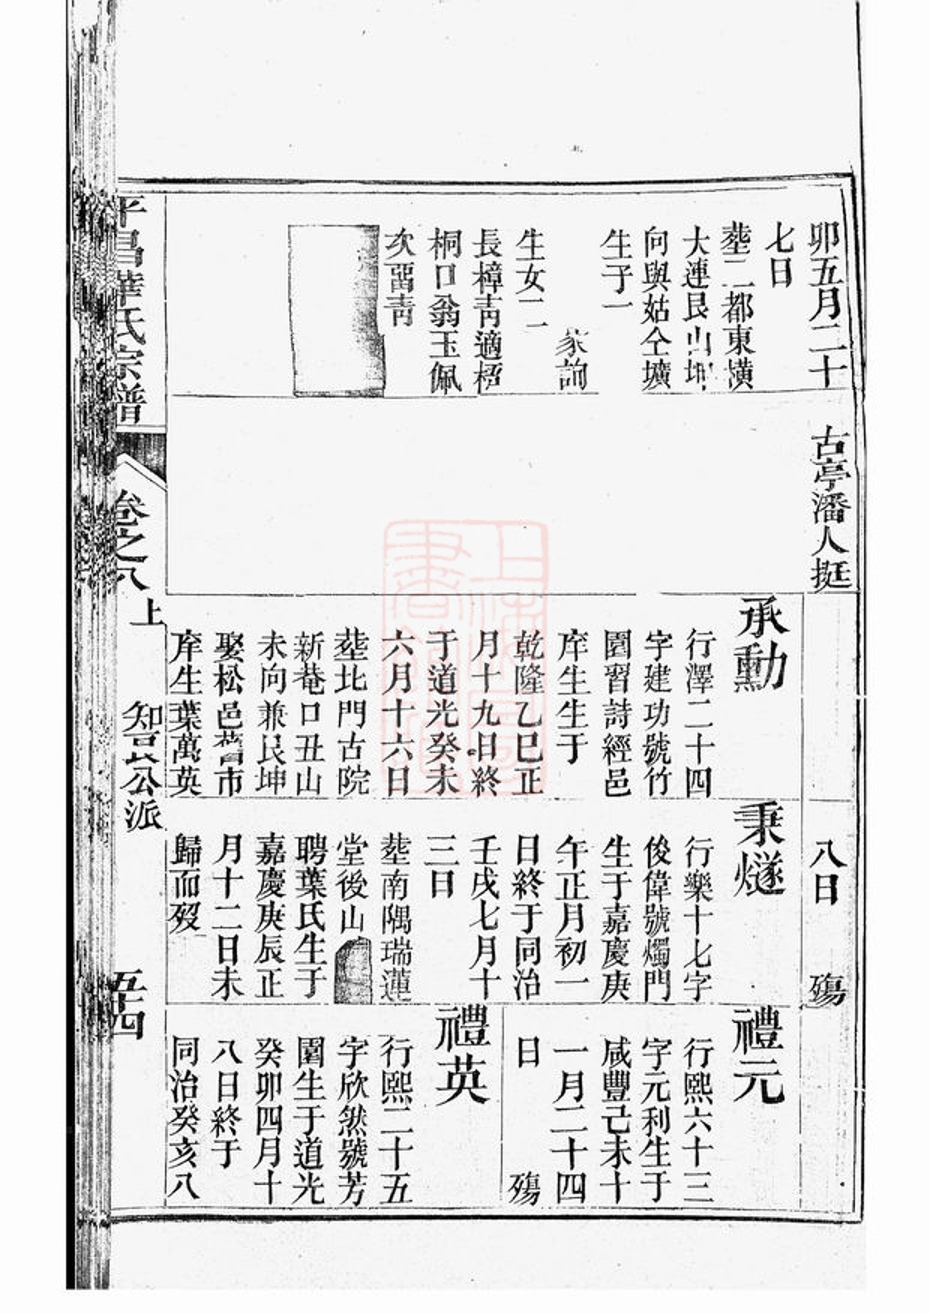 卯五月二十
七日
塟二都東橫
大連艮山坤
向與姑仝壙
生子一
家詢
生女二
長樟靑適極
桐口翁玉佩
次畱靑
古亭潘人挺
承勳
行澤二十四
字建功號竹
園習詩經邑
庠生生于
乾隆乙巳正
月十九日終
于道光癸未
六月十六日
塟北門古院
新菴口丑山
未向兼艮坤
娶松邑舊市
庠生葉萬英
八日 殤
秉燧
行樂十七字
俊偉號燭門
生于嘉慶庚
午正月初一
日終于同治
壬戌七月十
三日
塟南隅瑞蓮
堂後山
聘葉氏生于
嘉慶庚辰正
月十二日未
歸而歿
禮元
行熙六十三
字元利生于
咸豐己未十
一月二十四
日 殤
禮英
行熙二十五
字欣然號芳
園生于道光
癸卯四月十
八日終于
同治癸亥八
平昌華氏宗譜
卷之八
上
知民公派
五十四